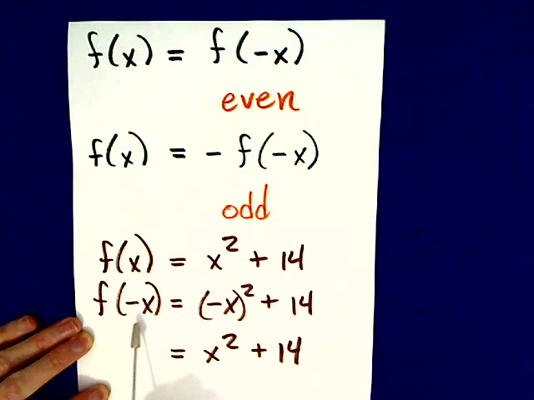 f(x) = f(-x)
even
f(x) = - f(-x)
odd
f(x) = x² + 14
f(-x) = (-x)² + 14
= x² + 14